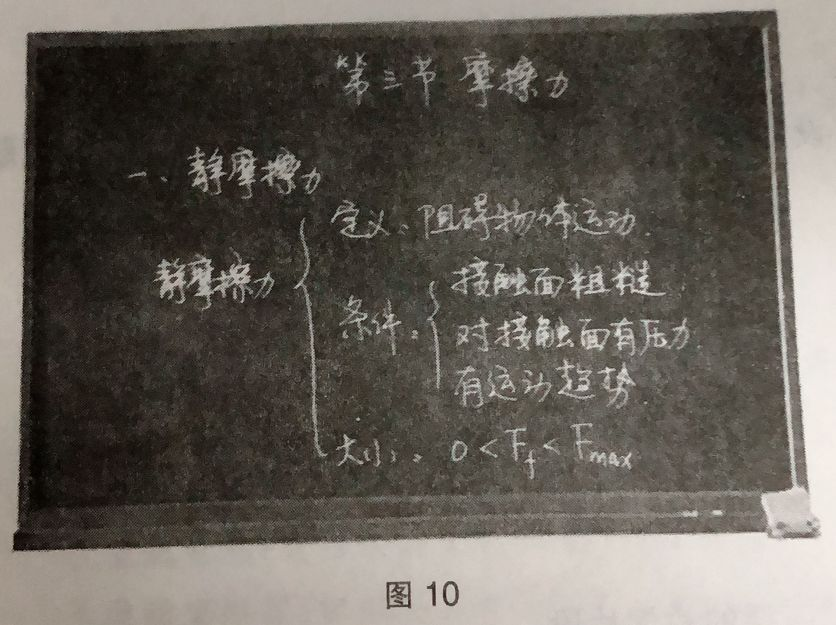 第三节 摩擦力
一、静摩擦力
定义：阻碍物体运动.
静摩擦力
条件：
接触面粗糙
对接触面有压力.
有运动趋势
大小： 0 < Ff < Fmax
图 10